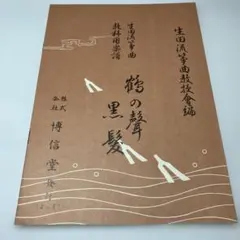 生田流箏曲教授會編
生田流箏曲
教科用楽譜
鶴の聲
黒髪
株式
会社
博信堂